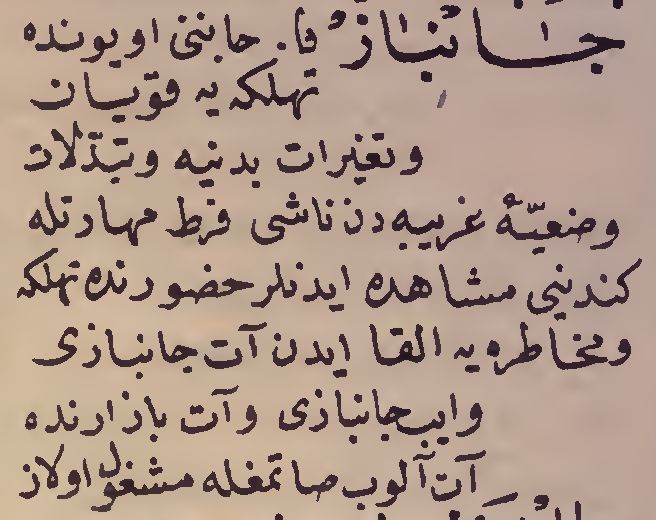 جانباز فا. جاننی اویونده
تهلكه یه قویان
وتغیرات بدنیه وتبدّلات
وضعیّهٔ غریبه دن ناشی فرط مهارتله
كندینی مشاهده ایدنلر حضورنده تهلكه
ومخاطره یه القا ایدن آت جانبازی
وایب جانبازی وآت بازارنده
آت آلوب صاتمغله مشغول اولان